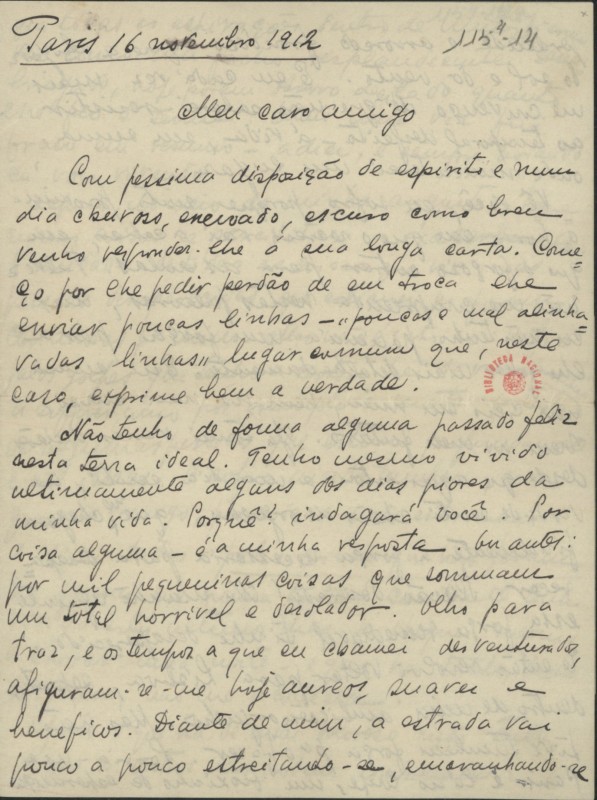 Paris 16 novembro 1912
115⁴-14
Meu caro amigo
Com pessima disposição de espirito e num
dia chuvoso, enevoado, escuro como breu
venho responder-lhe á sua longa carta. Come-
ço por lhe pedir perdão de em troca lhe
enviar poucas linhas – «poucas e mal alinha-
vadas linhas» lugar comum que, neste
caso, exprime bem a verdade.
BIBLIOTECA NACIONAL
Não tenho de forma alguma passado feliz
nesta terra ideal. Tenho mesmo vivido
ultimamente alguns dos dias piores da
minha vida. Porquê? indagará você. Por
coisa alguma – é a minha resposta. Ou antes:
por mil pequeninas coisas que sommam
um total horrivel e desolador. Olho para
traz, e os tempos a que eu chamei desventurados,
afiguram-se-me hoje aureos, suaves e
beneficos. Diante de mim, a estrada vai
pouco a pouco estreitando-se, emaranhando-se